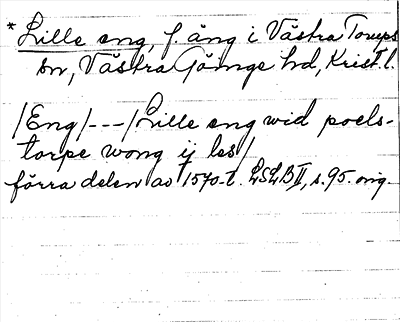 *Lille eng, f. äng i Västra Torups
sn, Västra Göinge hd, Krist. l.
/Eng/---/Lille eng wid poels-
torpe wong ij les/
förra delen av 1570-t. LSLB II, s. 95. orig.